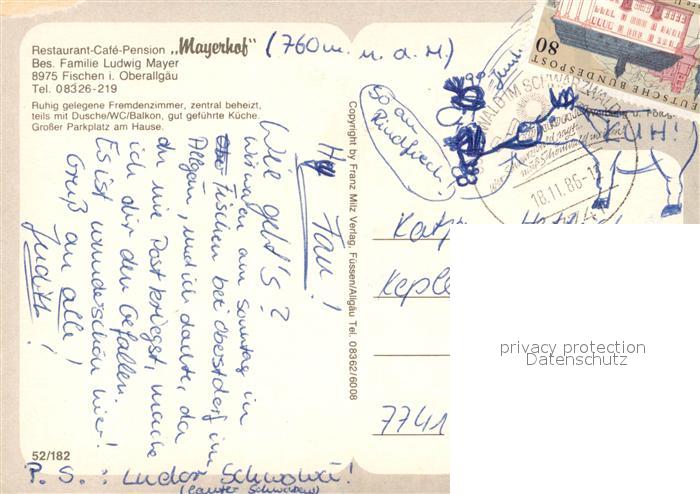 Restaurant-Café-Pension „Mayerhof" (760 m. ü. d. M.)
Bes. Familie Ludwig Mayer
8975 Fischen i. Oberallgäu
Tel. 08326-219
Ruhig gelegene Fremdenzimmer, zentral beheizt,
teils mit Dusche/WC/Balkon, gut geführte Küche.
Großer Parkplatz am Hause.
Wie geht's?
Wir waren am Sonntag in
Fischen bei Oberstdorf im
Allgäu, und ich dachte, da
du nie Post kriegst, mache
ich dir den Gefallen.
Es ist wunderschön hier!
Gruß an alle!
Judith!
52/182
P. S.: Luder Schwowä!
(lauter Schwaben)
Copyright by Franz Milz Verlag, Füssen/Allgäu Tel. 08362/6008
So an
Rindfiech!
KUH!
80
DEUTSCHE BUNDESPOST
WALD IM SCHWARZWALD
18.11.86-1
Keple
7741
privacy protection
Datenschutz